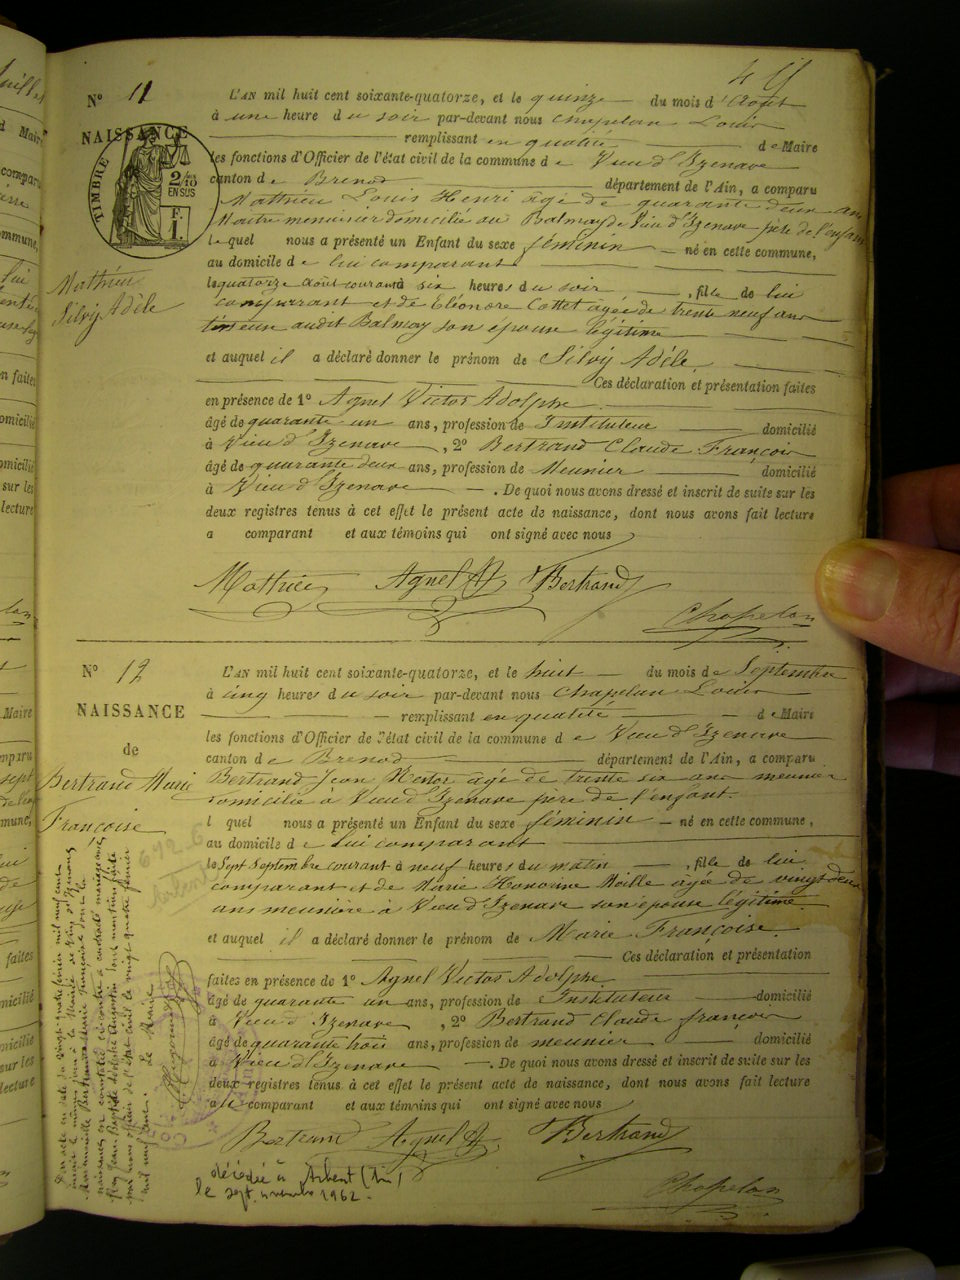 N° 11
NAISSANCE
TIMBRE
2/10
EN SUS
F.
1.
Mathieu
Silvy Adèle
L'AN mil huit cent soixante-quatorze, et le quinze du mois d'Août
à une heure du soir par-devant nous Chapelan Louis
remplissant en qualité de Maire
les fonctions d'Officier de l'état civil de la commune de Vieu d'Izenave
canton de Brenod département de l'Ain, a comparu
Mathieu Louis Henri âgé de quarante deux ans
Maitre menuisier domicilié au Balmay de Vieu d'Izenave père de l'enfant
lequel nous a présenté un Enfant du sexe féminin né en cette commune,
au domicile de lui comparant
le quatorze août courant à six heures du soir, fille de lui
comparant et de Eléonore Cottet agée de trente neuf ans
audit Balmay son épouse légitime
et auquel il a déclaré donner le prénom de Silvy Adèle.
Ces déclaration et présentation faites
en présence de 1° Agnel Victor Adolphe
âgé de quarante un ans, profession de Instituteur domicilié
à Vieu d'Izenave, 2° Bertrand Claude François
âgé de quarante deux ans, profession de Meunier domicilié
à Vieu d'Izenave. De quoi nous avons dressé et inscrit de suite sur les
deux registres tenus à cet effet le présent acte de naissance, dont nous avons fait lecture
a comparant et aux témoins qui ont signé avec nous
Mathieu Agnel Bertrand
Chapelan
N° 12
NAISSANCE
de
Bertrand Marie
Françoise
L'AN mil huit cent soixante-quatorze, et le huit du mois de Septembre
à cinq heures du soir par-devant nous Chapelan Louis
remplissant en qualité de Maire
les fonctions d'Officier de l'état civil de la commune de Vieu d'Izenave
canton de Brenod département de l'Ain, a comparu
Bertrand Jean Nestor âgé de trente six ans meunier
domicilié à Vieu d'Izenave père de l'enfant.
lequel nous a présenté un Enfant du sexe féminin né en cette commune,
au domicile de lui comparant
le Sept Septembre courant à neuf heures du matin, fille de lui
comparant et de Marie Honorine âgée de vingt deux
ans meunière à Vieu d'Izenave son épouse légitime
et auquel il a déclaré donner le prénom de Marie Françoise.
Ces déclaration et présentation
faites en présence de 1° Agnel Victor Adolphe
âgé de quarante un ans, profession de Instituteur domicilié
à Vieu d'Izenave, 2° Bertrand Claude françois
âgé de quarante trois ans, profession de meunier domicilié
à Vieu d'Izenave. De quoi nous avons dressé et inscrit de suite sur les
deux registres tenus à cet effet le présent acte de naissance, dont nous avons fait lecture
au comparant et aux témoins qui ont signé avec nous
Bertrand Agnel Bertrand
Chapelan
décédée à Arbent (Ain)
le sept novembre 1962.